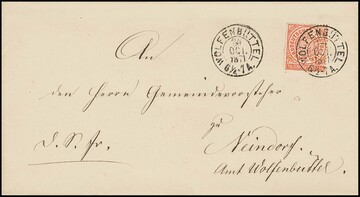 WOLFENBÜTTEL
OCT.
187
6½-7A.
WOLFENBÜTTEL
OCT.
187
6½-7A.
An
den Herrn Gemeindevorsteher
zu
D. S. fr.
Neindorf.
Amt Wolfenbüttel.